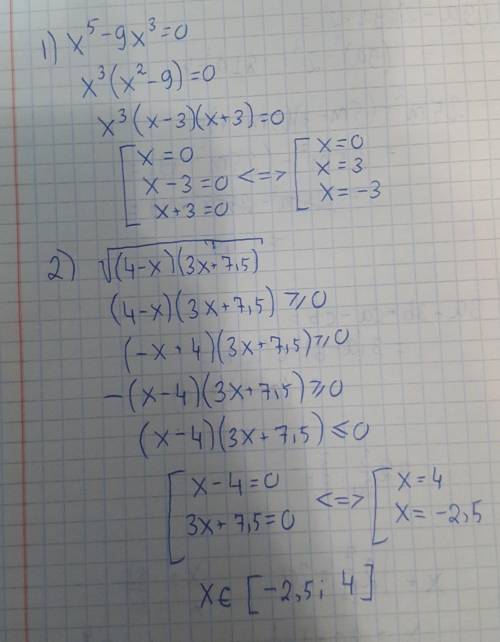 1) x⁵-9x³=0
x³(x²-9)=0
x³(x-3)(x+3)=0
[x=0 <=> [x=0
x-3=0 x=3
x+3=0 x=-3
2) √(4-x)(3x+7,5)
(4-x)(3x+7,5)⩾0
(-x+4)(3x+7,5)⩾0
-(x-4)(3x+7,5)⩾0
(x-4)(3x+7,5)⩽0
[x-4=0 <=> [x=4
3x+7,5=0 x=-2,5
x∈[-2,5; 4]